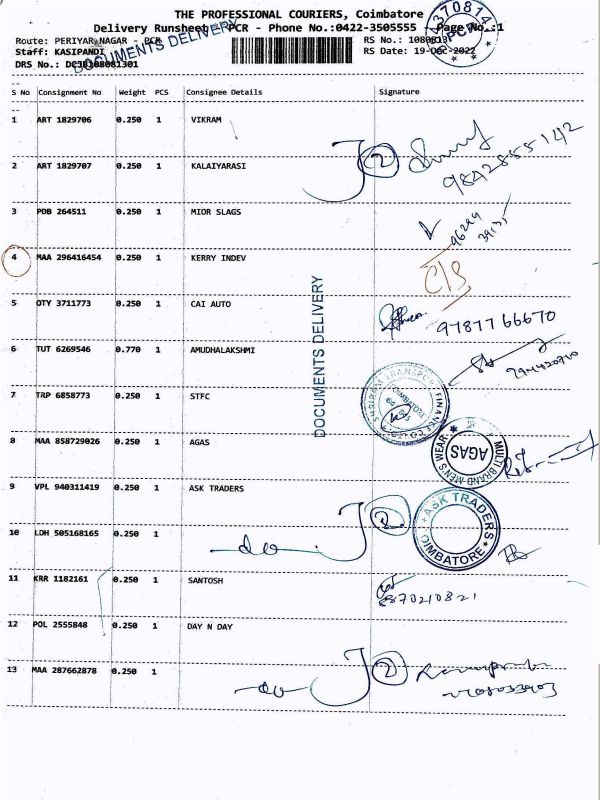 THE PROFESSIONAL COURIERS, Coimbatore
Delivery Runsheet - PCR - Phone No.:0422-3505555 - Page No.:1
Route: PERIYAR NAGAR - PCR
RS No.: 1080813
Staff: KASIPANDI
RS Date: 19-Dec-2022
DRS No.: DCJ0108081301
DOCUMENTS DELIVERY
S No Consignment No Weight PCS Consignee Details Signature
1 ART 1829706 0.250 1 VIKRAM
2 ART 1829707 0.250 1 KALAIYARASI
2
9842855142
3 PDB 264511 0.250 1 MIOR SLAGS
4 MAA 296416454 0.250 1 KERRY INDEV
C/S
5 OTY 3711773 0.250 1 CAI AUTO
9787766670
DOCUMENTS DELIVERY
6 TUT 6269546 0.770 1 AMUDHALAKSHMI
7 TRP 6858773 0.250 1 STFC
SHRIRAM TRANSPORT FINANCE CO.
COIMBATORE
8 MAA 858729026 0.250 1 AGAS
MULTI BRAND-MEN'S WEAR
AGAS
9 VPL 940311419 0.250 1 ASK TRADERS
ASK TRADERS
COIMBATORE
10 LDH 505168165 0.250 1
do
2
11 KRR 1182161 0.250 1 SANTOSH
870210821
12 POL 2555848 0.250 1 DAY N DAY
13 MAA 287662878 0.250 1
do
2